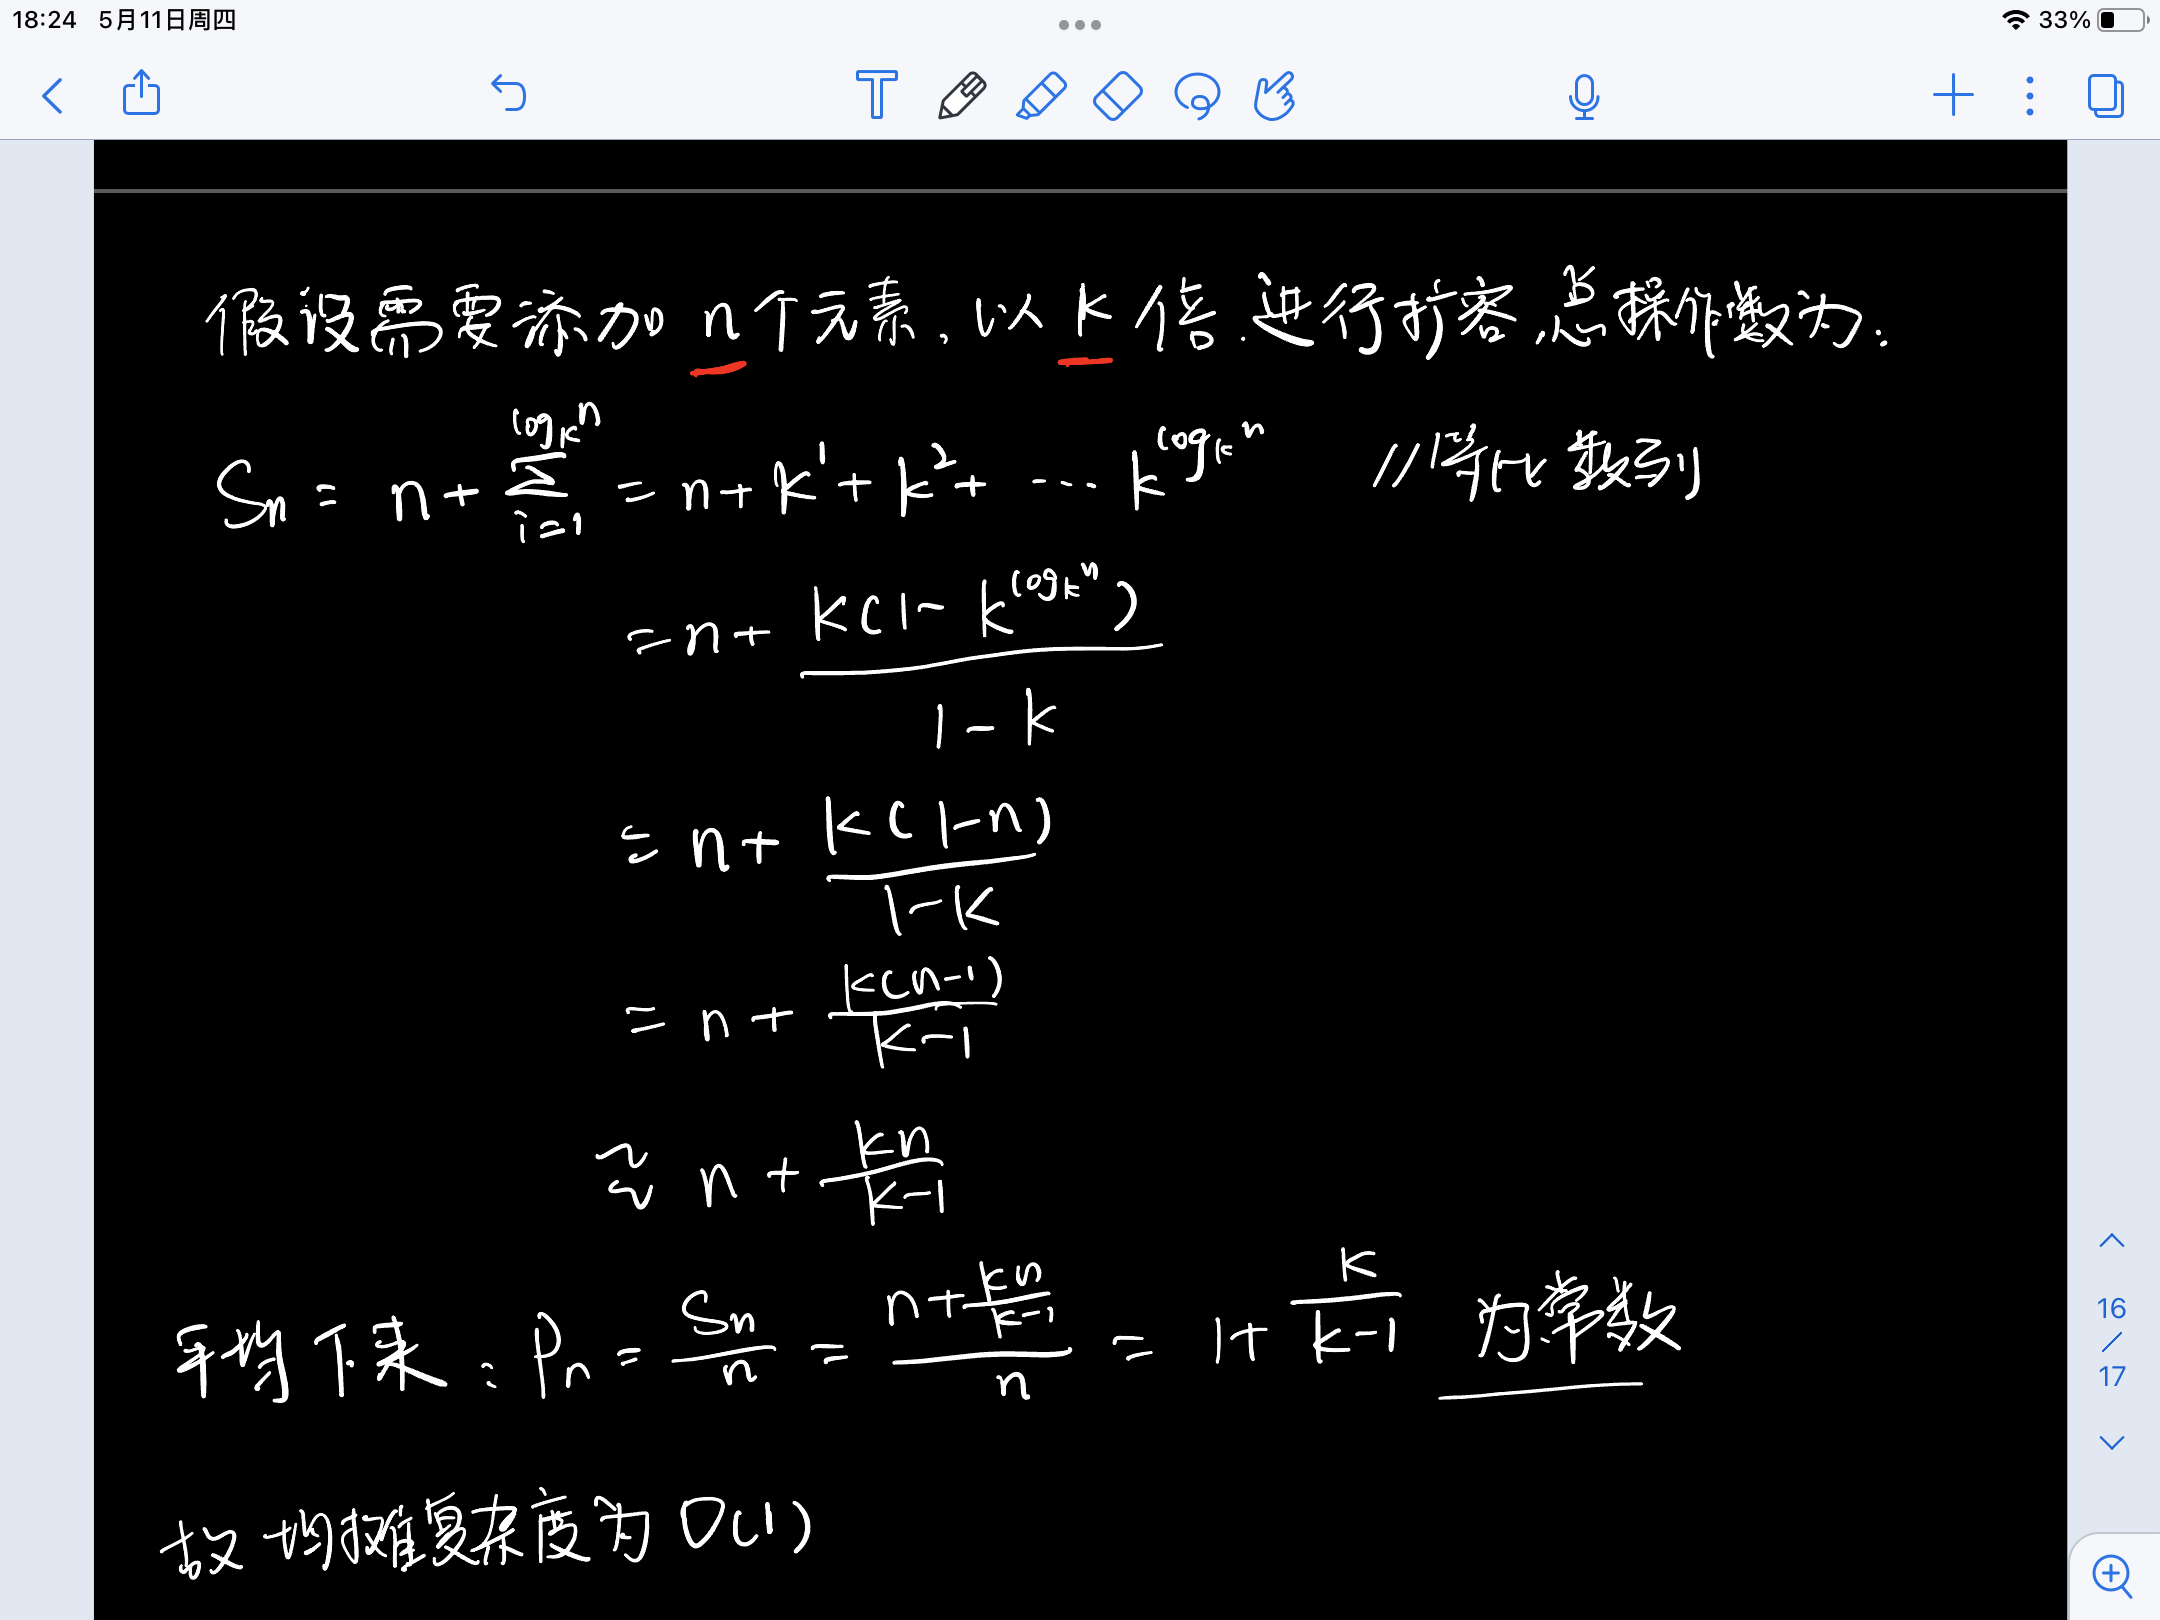 18:24 5月11日周四
33%
假设需要添加 n个元素, 以 k 倍 进行扩容, 总操作数为:
Sn = n + ∑_{i=1}^{log_k n} = n + k^1 + k^2 + ... k^{log_k n} //等比数列
= n + k(1 - k^{log_k n}) / 1 - k
= n + k(1-n) / 1-k
= n + k(n-1) / k-1
≈ n + kn / k-1
平均下来: Pn = Sn / n = n + kn/k-1 / n = 1 + k / k-1 为常数
故均摊复杂度为 O(1)
16
/
17